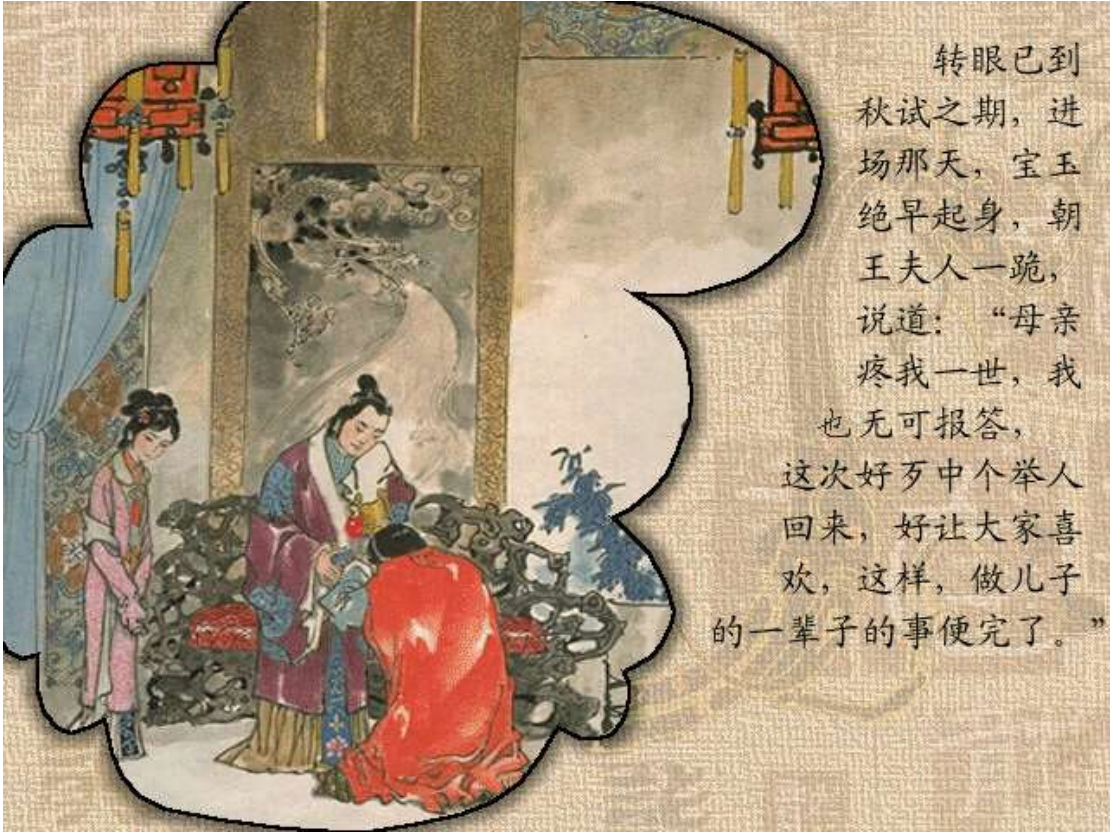 转眼已到
秋试之期，进
场那天，宝玉
绝早起身，朝
王夫人一跪，
说道：“母亲
疼我一世，我
也无可报答，
这次好歹中个举人
回来，好让大家喜
欢，这样，做儿子
的一辈子的事便完了。”